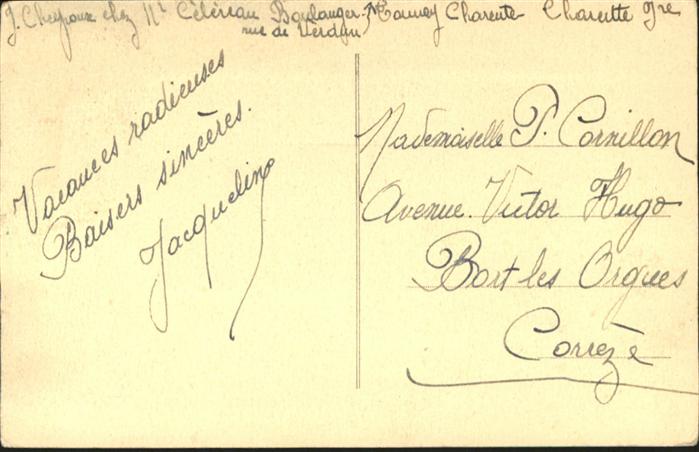 J. Cheyroux chez Mr Célereau Boulanger Tonnay Charente Charente Ire
rue de Verdun
Vacances radieuses
Baisers sincères.
Jacqueline
Mademoiselle P. Cornillon
Avenue Victor Hugo
Bort les Orgues
Corrèze